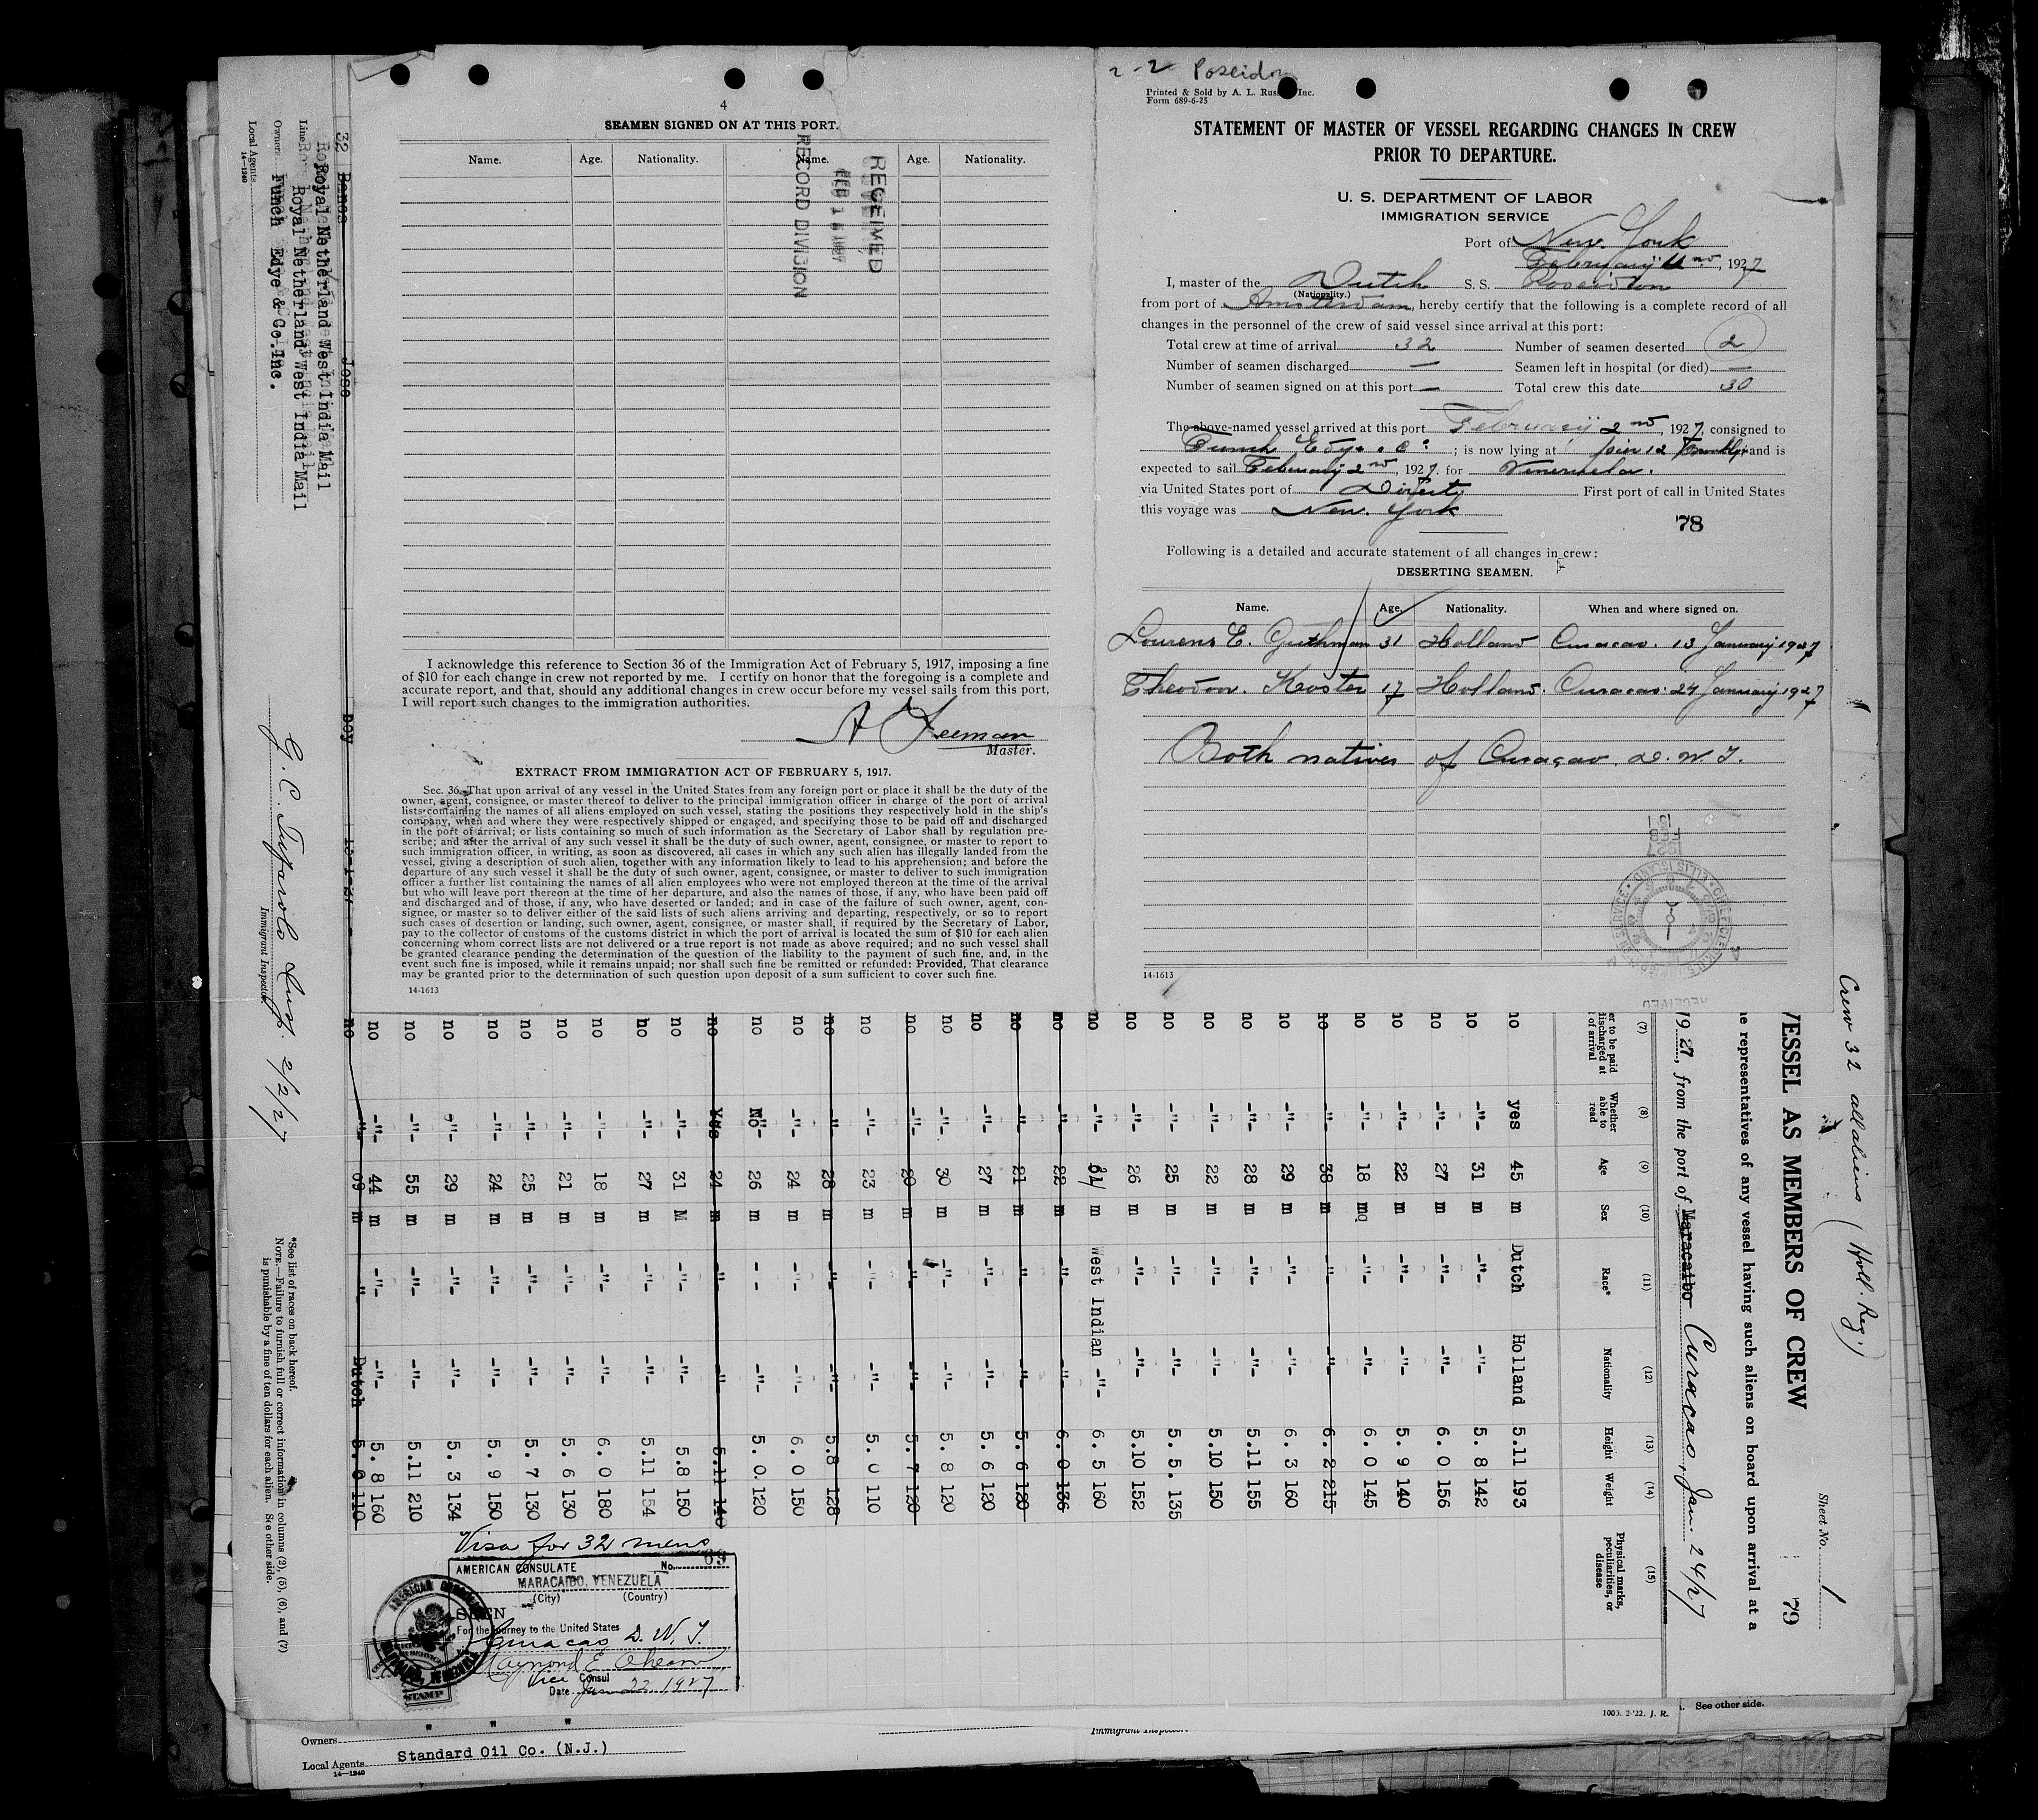 2-2 Poseidon
Printed & Sold by A. L. Russ Inc.
Form 689-6-25
STATEMENT OF MASTER OF VESSEL REGARDING CHANGES IN CREW
PRIOR TO DEPARTURE.
U. S. DEPARTMENT OF LABOR
IMMIGRATION SERVICE
Port of New York
February 11 nd, 1927
I, master of the Dutch S. S. Poseidon
(Nationality.)
from port of Amsterdam, hereby certify that the following is a complete record of all
changes in the personnel of the crew of said vessel since arrival at this port:
Total crew at time of arrival 32 Number of seamen deserted 2
Number of seamen discharged — Seamen left in hospital (or died) —
Number of seamen signed on at this port — Total crew this date 30
The above-named vessel arrived at this port February 2nd, 1927, consigned to
Funch Edye & Co; is now lying at pier 12 Brooklyn and is
expected to sail February 2nd, 1927. for Venezuela.
via United States port of Direct First port of call in United States
this voyage was New York
78
Following is a detailed and accurate statement of all changes in crew:
DESERTING SEAMEN.
Name. Age. Nationality. When and where signed on.
Lourens E. Guthman 31 Holland Curacao. 13 January 1927
Theodor. Koster 17 Holland. Curacao. 24 January 1927
Both natives of Curaçao. D. W. I.
14-1613
4
SEAMEN SIGNED ON AT THIS PORT.
Name. Age. Nationality. Name. Age. Nationality.
RECEIVED
FEB 16 1927
RECORD DIVISION
I acknowledge this reference to Section 36 of the Immigration Act of February 5, 1917, imposing a fine
of $10 for each change in crew not reported by me. I certify on honor that the foregoing is a complete and
accurate report, and that, should any additional changes in crew occur before my vessel sails from this port,
I will report such changes to the immigration authorities.
A Seeman
Master.
EXTRACT FROM IMMIGRATION ACT OF FEBRUARY 5, 1917.
Sec. 36. That upon arrival of any vessel in the United States from any foreign port or place it shall be the duty of the
owner, agent, consignee, or master thereof to deliver to the principal immigration officer in charge of the port of arrival
lists containing the names of all aliens employed on such vessel, stating the positions they respectively hold in the ship's
company, when and where they were respectively shipped or engaged, and specifying those to be paid off and discharged
in the port of arrival; or lists containing so much of such information as the Secretary of Labor shall by regulation pre-
scribe; and after the arrival of any such vessel it shall be the duty of such owner, agent, consignee, or master to report to
such immigration officer, in writing, as soon as discovered, all cases in which any such alien has illegally landed from the
vessel, giving a description of such alien, together with any information likely to lead to his apprehension; and before the
departure of any such vessel it shall be the duty of such owner, agent, consignee, or master to deliver to such immigration
officer a further list containing the names of all alien employees who were not employed thereon at the time of the arrival
but who will leave port thereon at the time of her departure, and also the names of those, if any, who have been paid off
and discharged and of those, if any, who have deserted or landed; and in case of the failure of such owner, agent, con-
signee, or master so to deliver either of the said lists of such aliens arriving and departing, respectively, or so to report
such cases of desertion or landing, such owner, agent, consignee, or master shall, if required by the Secretary of Labor,
pay to the collector of customs of the customs district in which the port of arrival is located the sum of $10 for each alien
concerning whom correct lists are not delivered or a true report is not made as above required; and no such vessel shall
be granted clearance pending the determination of the question of the liability to the payment of such fine, and, in the
event such fine is imposed, while it remains unpaid; nor shall such fine be remitted or refunded: Provided, That clearance
may be granted prior to the determination of such question upon deposit of a sum sufficient to cover such fine.
14-1613
Crew 32 all aliens (Holl. Reg.)
Sheet No. 1
VESSEL AS MEMBERS OF CREW 79
representatives of any vessel having such aliens on board upon arrival at a
1927, from the port of Maracaibo Curacao, Jan. 24/27
(7) (8) (9) (10) (11) (12) (13) (14) (15)
er to be paid discharged at of arrival Whether able to read Age Sex Race* Nationality Height Weight Physical marks, peculiarities, or disease
no yes 45 m Dutch Holland 5.11 193
no -"- 31 m -"- -"- 5. 8 142
no -"- 27 m -"- -"- 6. 0 156
no -"- 22 m -"- -"- 5. 9 140
no -"- 18 m -"- -"- 6. 0 145
no -"- 38 m -"- -"- 6. 2 215
no -"- 29 m -"- -"- 6. 3 160
no -"- 28 m -"- -"- 5.11 155
no -"- 22 m -"- -"- 5.10 150
no -"- 25 m -"- -"- 5. 5. 135
no -"- 26 m -"- -"- 5.10 152
no -"- 31 m West Indian -"- 6. 5 160
no -"- 22 m -"- -"- 6. 0 136
no -"- 21 m -"- -"- 5. 6 120
no -"- 27 m -"- -"- 5. 6 120
no -"- 30 m -"- -"- 5. 8 120
no -"- 20 m -"- -"- 5. 7 120
no -"- 23 m -"- -"- 5. 0 110
no -"- 28 m -"- -"- 5.8 128
no -"- 24 m -"- -"- 6. 0 150
no No 26 m - - -"- 5. 0. 120
no Yes 24 m -"- -"- 5.11 140
no -"- 31 M -"- -"- 5.8 150
no -"- 27 m -"- -"- 5.11 154
no -"- 18 m -"- -"- 6. 0 180
no -"- 21 m -"- -"- 5. 6 130
no -"- 25 m -"- -"- 5. 7 130
no -"- 24 m -"- -"- 5. 9 150
no -"- 29 m -"- -"- 5. 3 134
no -"- 55 m -"- -"- 5.11 210
no -"- 44 m -"- -"- 5. 8 160
32 Jose Boy no -"- 09 m -"- Dutch 5. 0 110
Line Royal Netherland West India Mail
Owners Royal Netherland West India Mail
Local Agents Funch Edye & Co.Inc.
14-1240
Immigrant Inspector.
2/2/27
*See list of races on back hereof.
NOTE.—Failure to furnish full or correct information in columns (2), (5), (6), and (7)
is punishable by a fine of ten dollars for each alien. See other side.
Visa for 32 mens
AMERICAN CONSULATE No. 69
MARACAIBO, VENEZUELA
(City) (Country)
SEEN
For the journey to the United States
via Curacao D. W. I.
Raymond E
Vice Consul
Date Jan 22 1927
STAMP
1000. 2-'22. J. R.
See other side.
Owners
Immigrant Inspector.
Local Agents Standard Oil Co. (N.J.)
14-1240